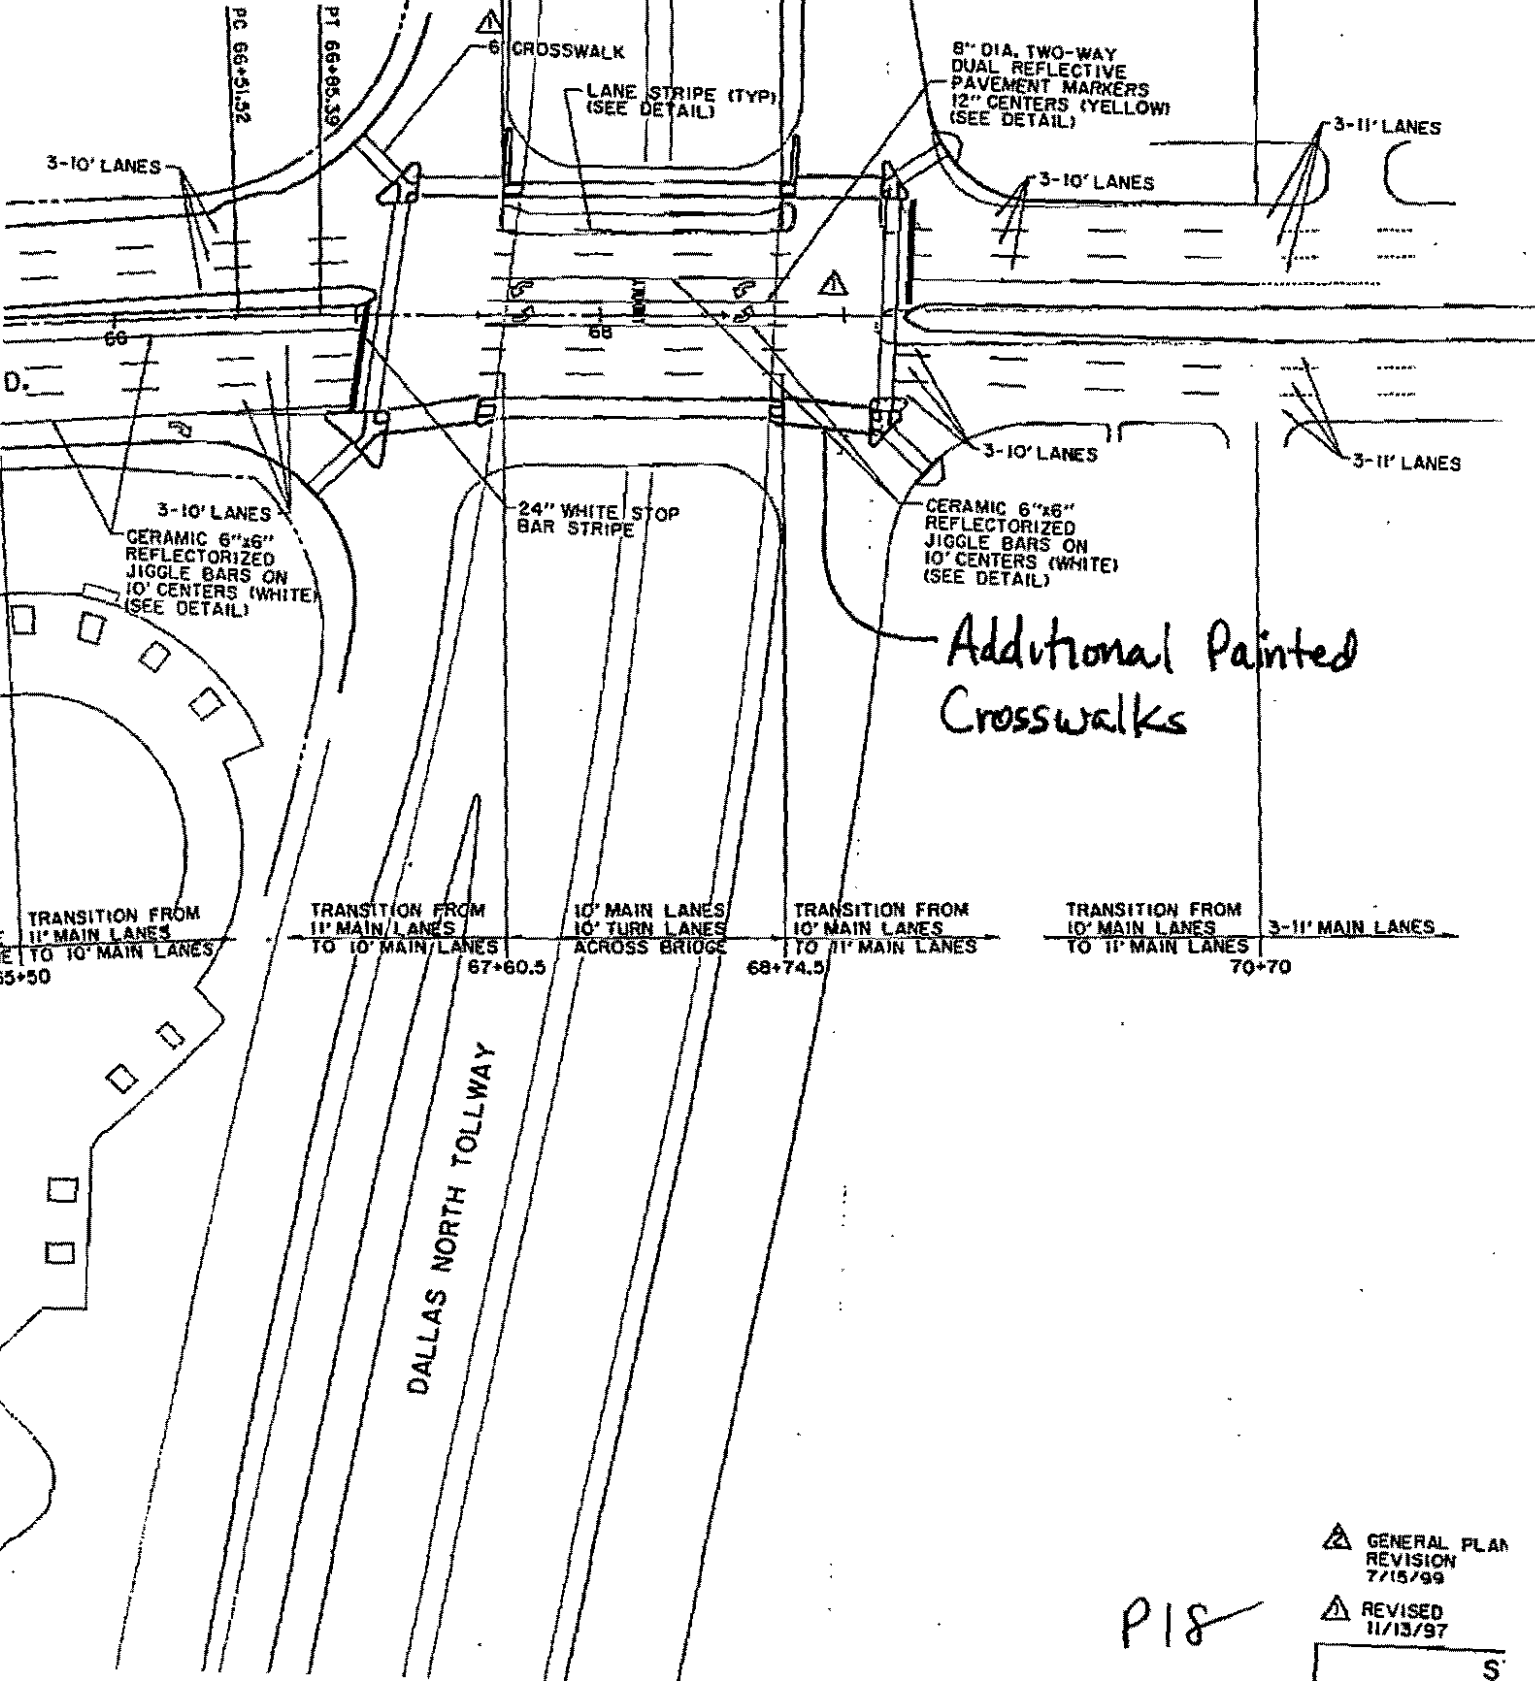 PC 66+51.52
PT 66+85.39
1
6' CROSSWALK
LANE STRIPE (TYP)
(SEE DETAIL)
8" DIA. TWO-WAY
DUAL REFLECTIVE
PAVEMENT MARKERS
12" CENTERS (YELLOW)
(SEE DETAIL)
3-11' LANES
3-10' LANES
3-10' LANES
1
66
68
D.
3-10' LANES
3-11' LANES
3-10' LANES
24" WHITE STOP
BAR STRIPE
CERAMIC 6"x6"
REFLECTORIZED
JIGGLE BARS ON
10' CENTERS (WHITE)
(SEE DETAIL)
CERAMIC 6"x6"
REFLECTORIZED
JIGGLE BARS ON
10' CENTERS (WHITE)
(SEE DETAIL)
Additional Painted
Crosswalks
TRANSITION FROM
11' MAIN LANES
TO 10' MAIN LANES
TRANSITION FROM
11' MAIN LANES
TO 10' MAIN LANES
10' MAIN LANES
10' TURN LANES
ACROSS BRIDGE
TRANSITION FROM
10' MAIN LANES
TO 11' MAIN LANES
TRANSITION FROM
10' MAIN LANES
TO 11' MAIN LANES
3-11' MAIN LANES
65+50
67+60.5
68+74.5
70+70
DALLAS NORTH TOLLWAY
2 GENERAL PLAN
REVISION
7/15/99
1 REVISED
11/13/97
P18
S